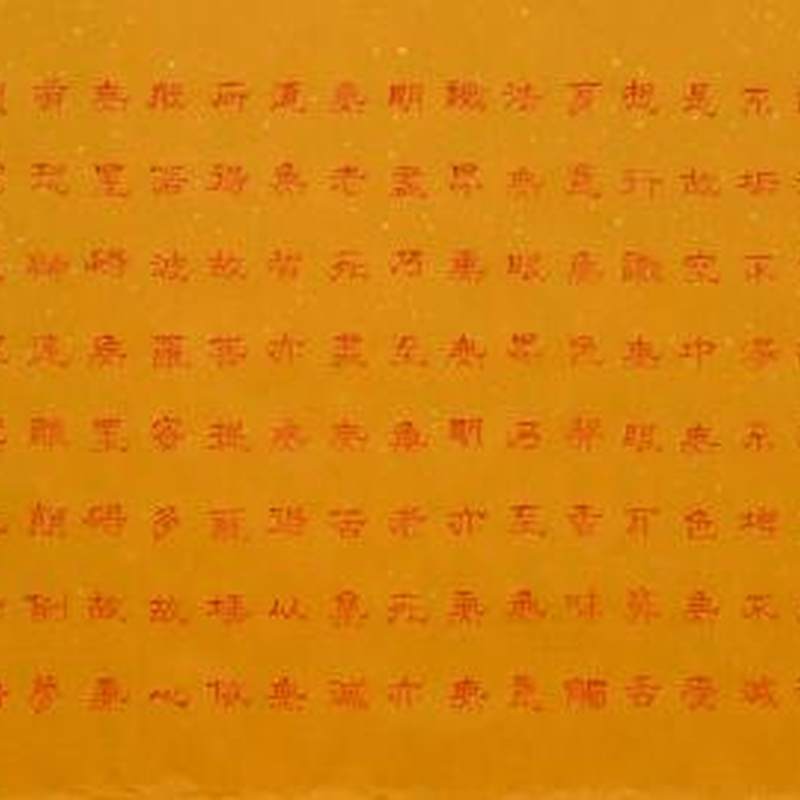 不垢不淨不增不減
是故空中無色無受
想行識無眼耳鼻舌
身意無色聲香味觸
法無眼界乃至無意
識界無無明亦無無
明盡乃至無老死亦
無老死盡無苦集滅
道無智亦無得以無
所得故菩提薩埵依
般若波羅蜜多故心
無罣礙無罣礙故無
有恐怖遠離顛倒夢